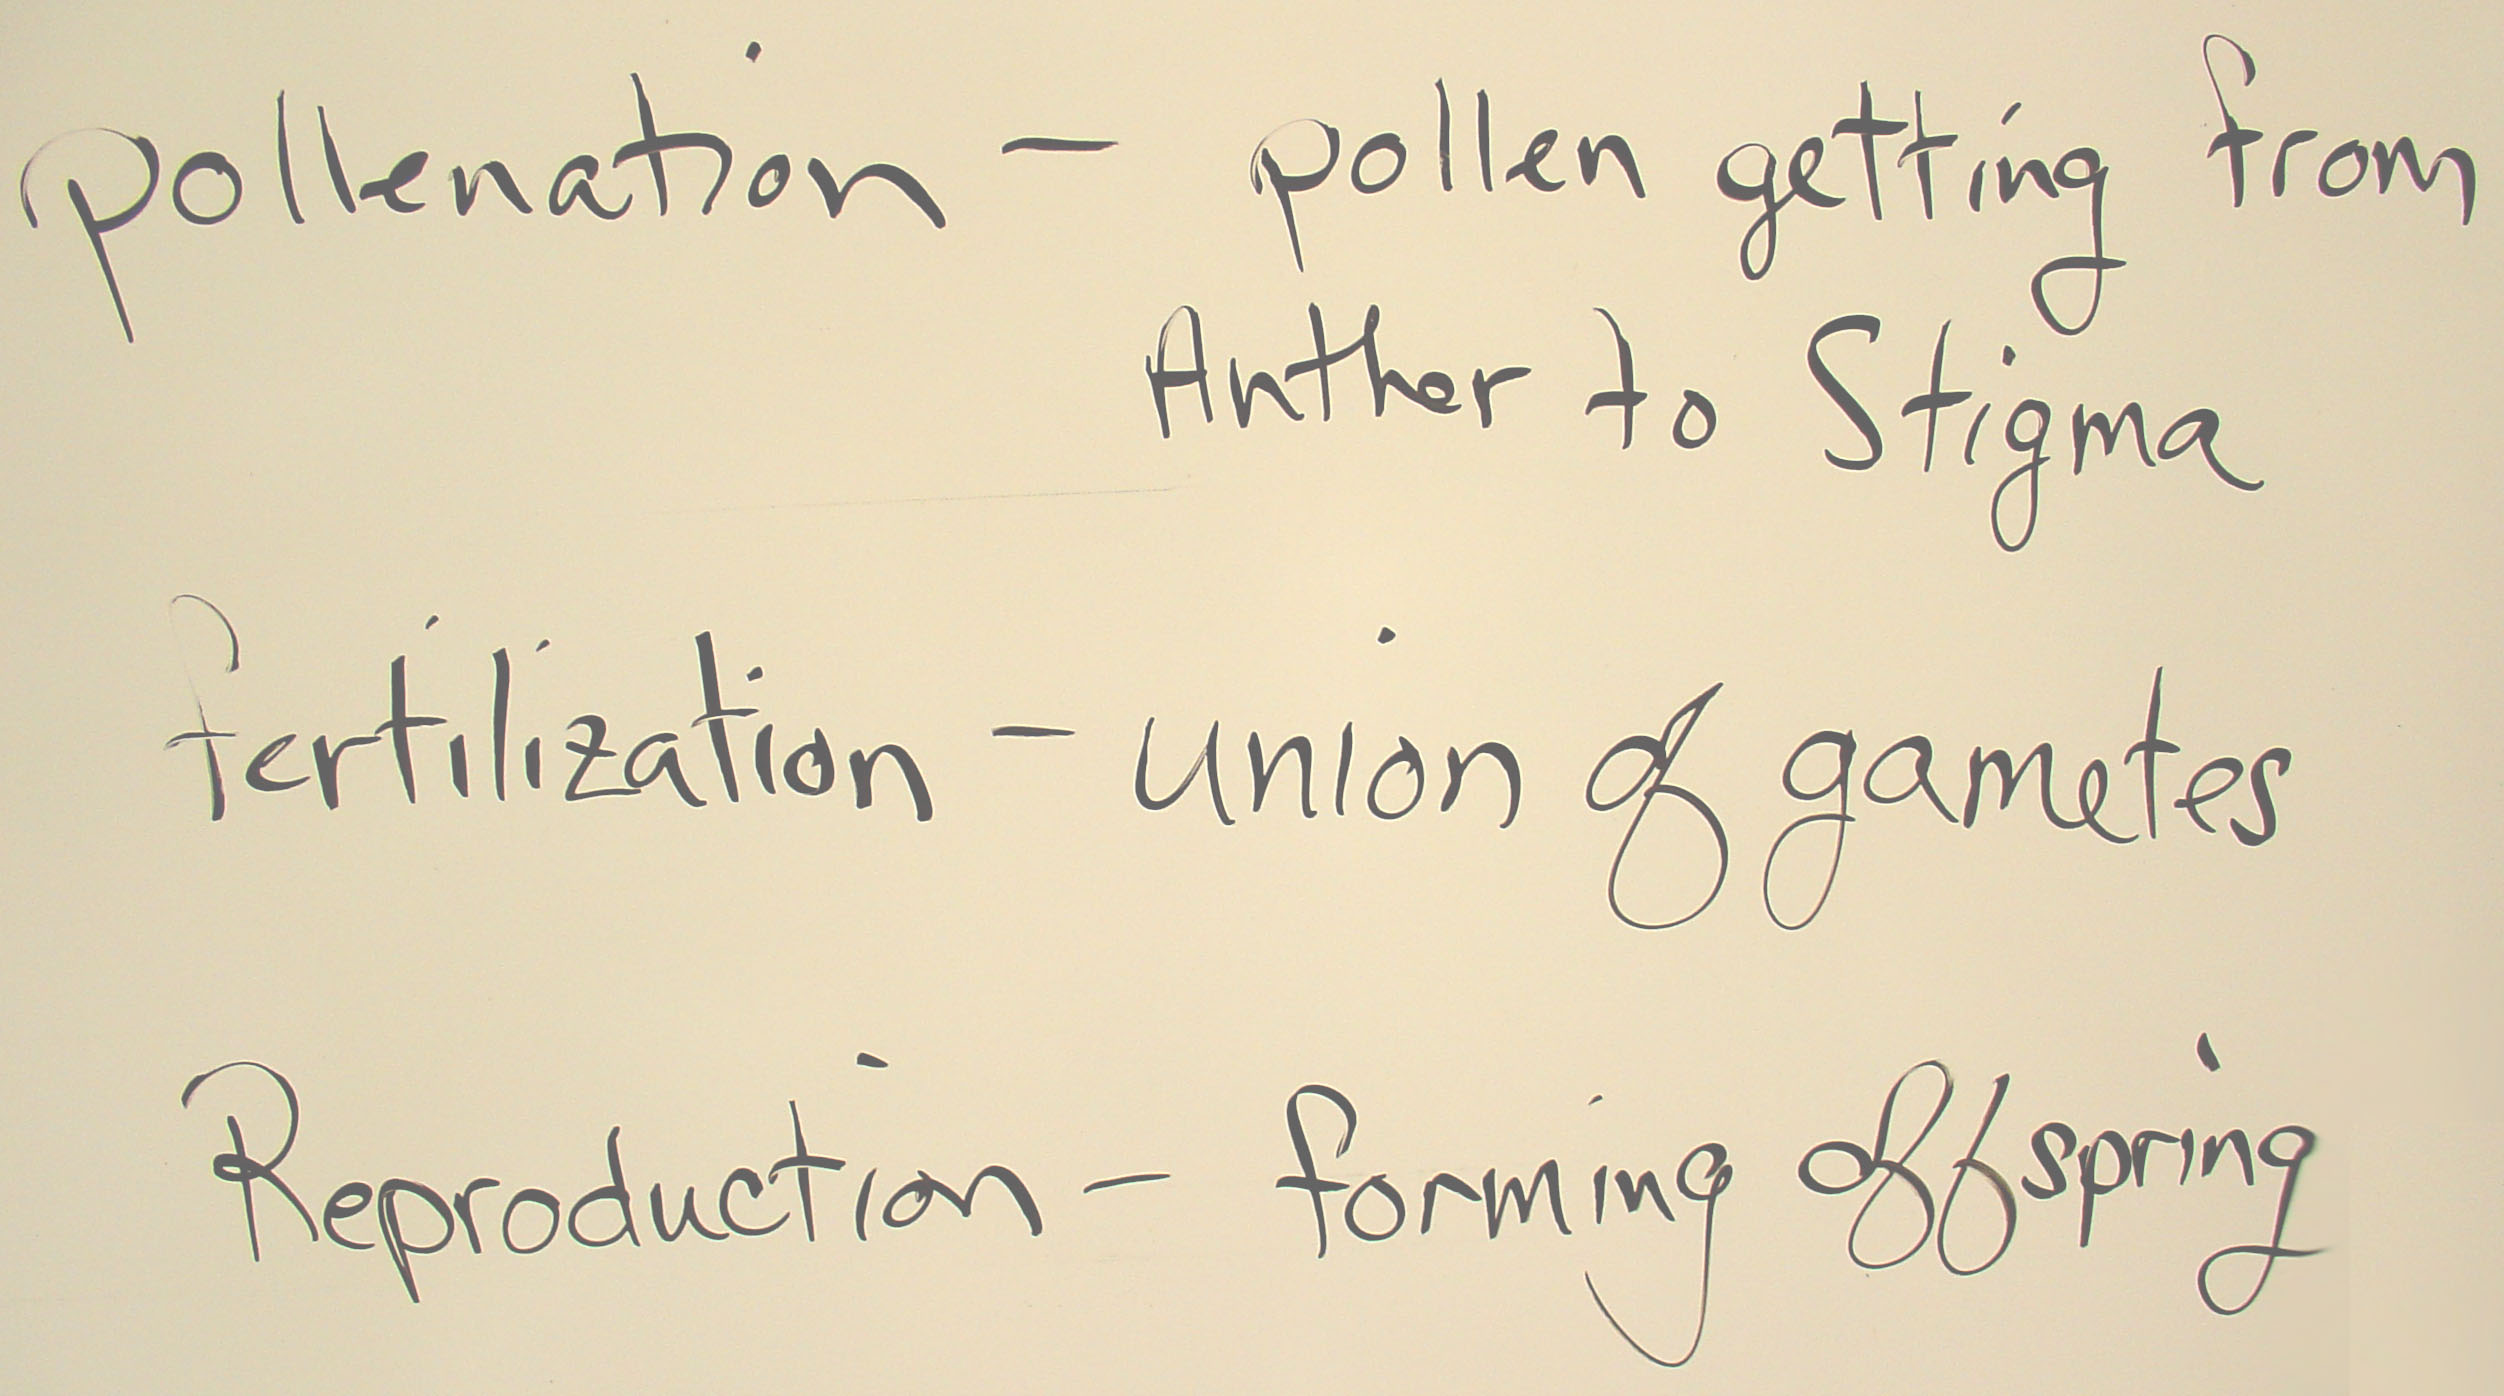 pollenation - pollen getting from
Anther to Stigma
fertilization - union of gametes
Reproduction - forming offspring